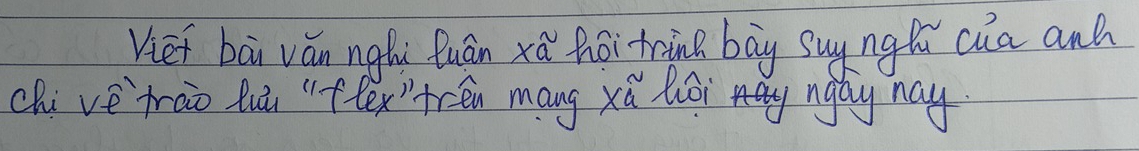 Viết bài văn nghị luận xã hội trình bày suy nghĩ của anh
chị về trào lưu "flex" trên mạng xã hội nay ngày nay.